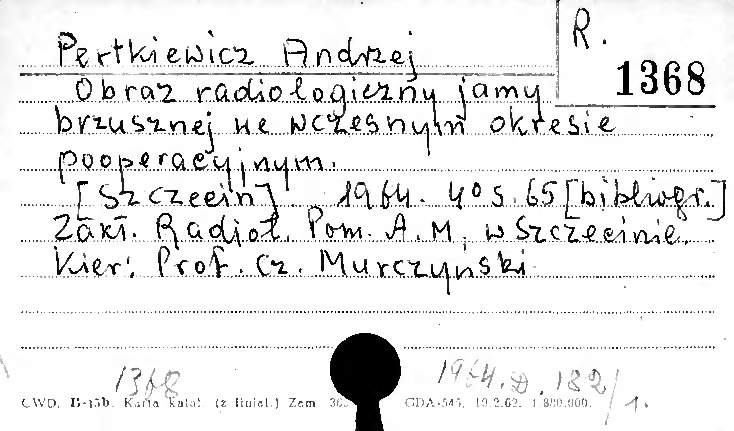 R.
1368
Pertkiewicz Andrzej
Obraz radiologiczny jamy
brzusznej we wczesnym okresie
pooperacyjnym.
[Szczecin] 1964. 4° s. 65 [bibliogr.]
Zakł. Radiol. Pom. A. M. w Szczecinie.
Kier: Prof. Cz. Murczyński
1368 1964. D. 182/1.
CWD, B-15b. Karta katal. (z liniat.) Zam. GDA-545, 10.2.62. 1.880.000.